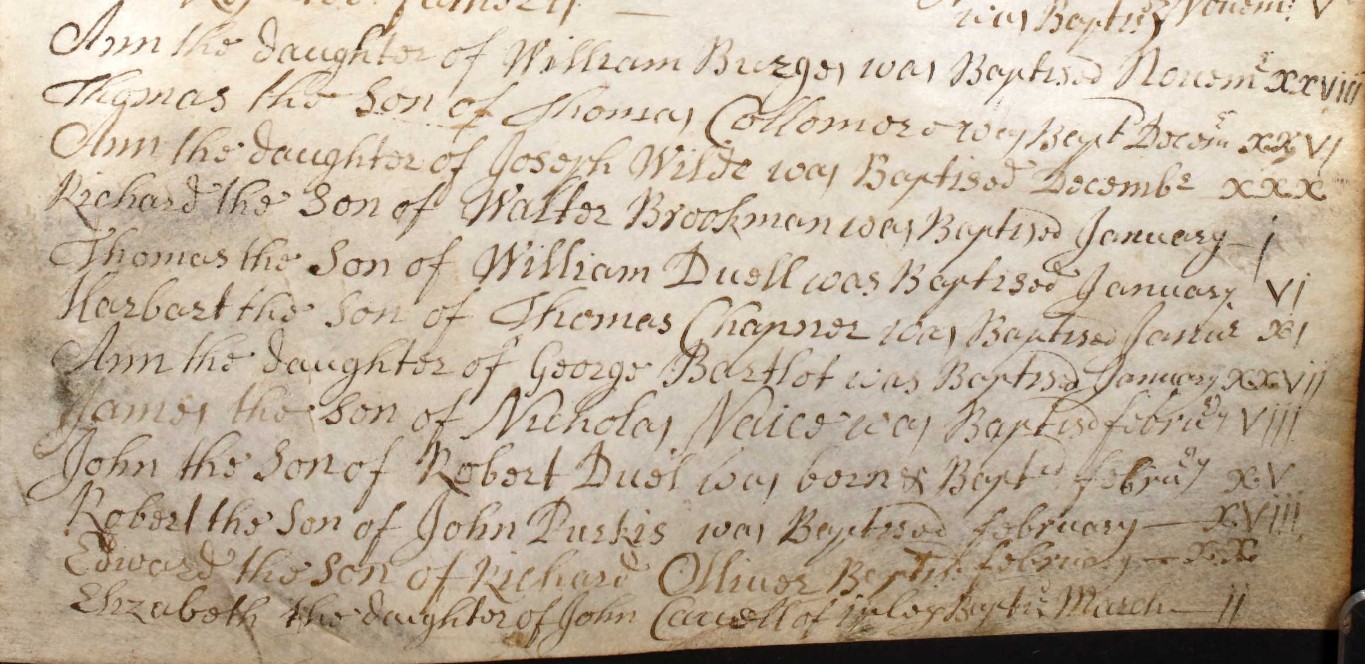 was Baptis Novem: V
Ann the daughter of William Burges was Baptised Novemr xxviii
Thomas the Son of Thomas Collomore was Bapt Decemr xxvi
Ann the daughter of Joseph Wilde was Baptised Decembr xxx
Richard the Son of Walter Brookman was Baptised January — i
Thomas the Son of William Duell was Baptised January vi
Harbart the Son of Thomas Chapner was Baptised Janur xi
Ann the daughter of George Bartlot was Baptised January xxvii
James the Son of Nicholas Naice was Baptised febriary viii
John the Son of Robert Duel was born & Baptd february xv
Robert the Son of John Purkis was Baptised february — xviii
Edward the Son of Richard Olliver Baptis: february — xx
Elizabeth the daughter of John of Baptis March — ii